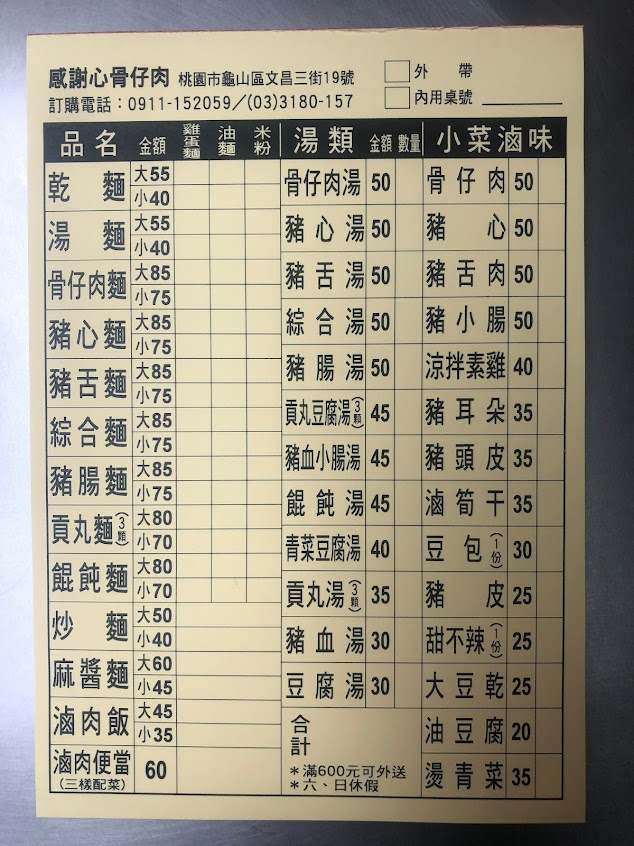 感謝心骨仔肉 桃園市龜山區文昌三街19號
訂購電話：0911-152059／(03)3180-157
外帶
內用桌號
品名 金額 雞蛋麵 油麵 米粉
乾麵 大55 小40
湯麵 大55 小40
骨仔肉麵 大85 小75
豬心麵 大85 小75
豬舌麵 大85 小75
綜合麵 大85 小75
豬腸麵 大85 小75
貢丸麵(3顆) 大80 小70
餛飩麵 大80 小70
炒麵 大50 小40
麻醬麵 大60 小45
滷肉飯 大45 小35
滷肉便當 60
(三樣配菜)
湯類 金額 數量
骨仔肉湯 50
豬心湯 50
豬舌湯 50
綜合湯 50
豬腸湯 50
貢丸豆腐湯(3顆) 45
豬血小腸湯 45
餛飩湯 45
青菜豆腐湯 40
貢丸湯(3顆) 35
豬血湯 30
豆腐湯 30
合計
＊滿600元可外送
＊六、日休假
小菜滷味
骨仔肉 50
豬心 50
豬舌肉 50
豬小腸 50
涼拌素雞 40
豬耳朵 35
豬頭皮 35
滷筍干 35
豆包(1份) 30
豬皮 25
甜不辣(1份) 25
大豆乾 25
油豆腐 20
燙青菜 35